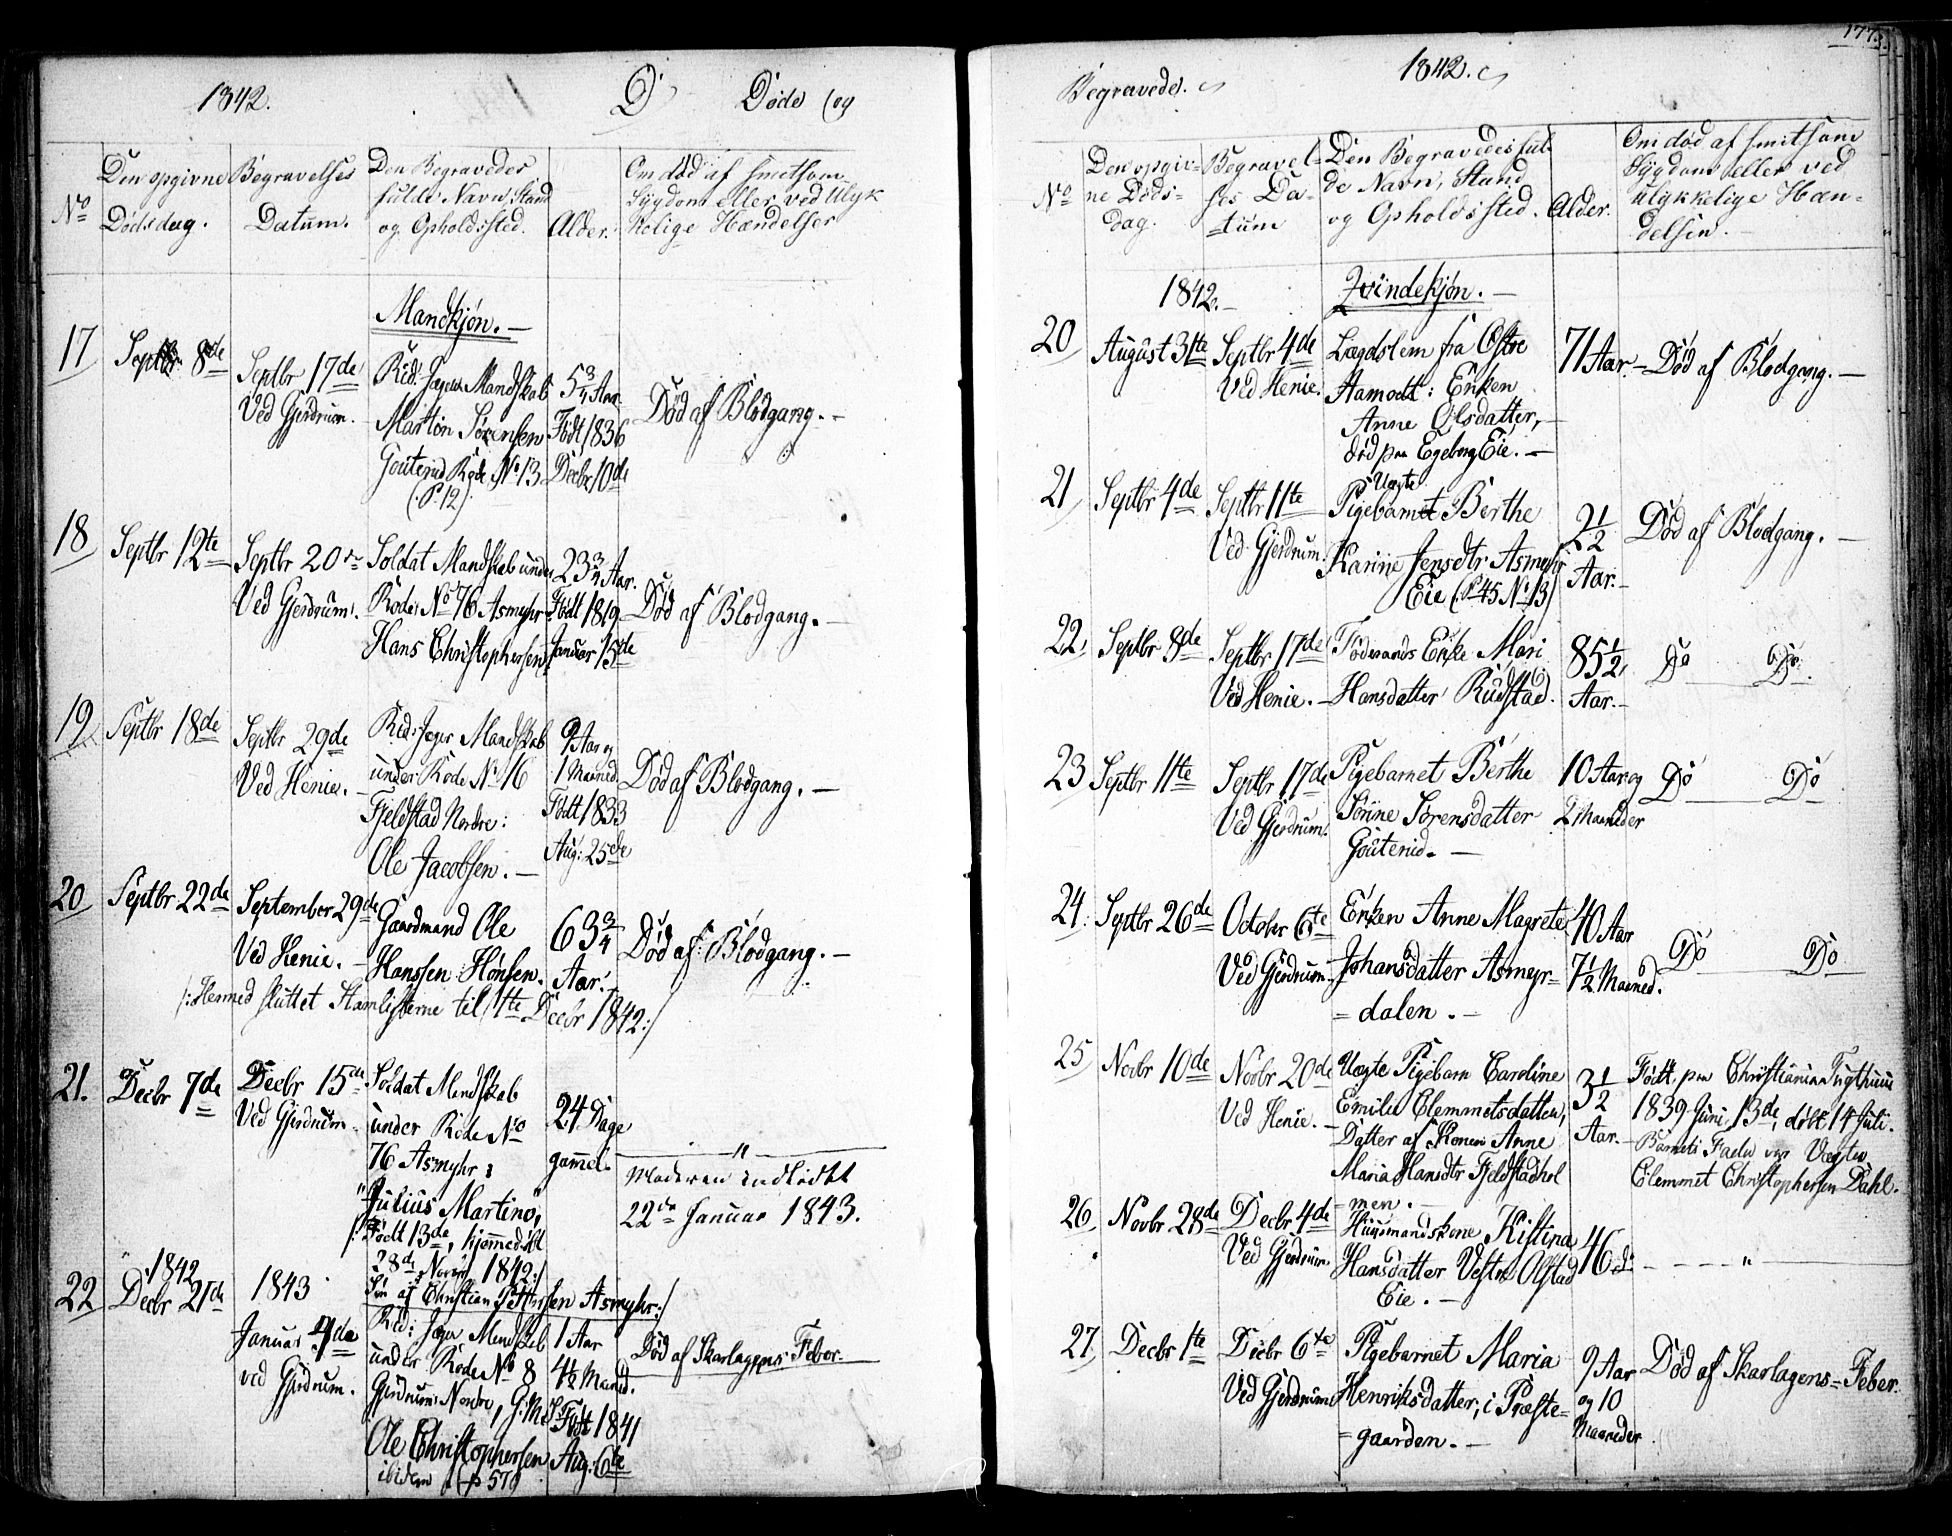 1842. D Døde (og
No
Den opgivne
Dødsdag.
Begravelses
Datum.
Den Begravedes
fulde Navn, Stand
og Opholdssted.
Alder.
Om død af smitsom
Sygdom eller ved Ulyk
kelige Hændelser
Mandkjøn. —
17
Septbr 8de
Septbr 17de
Ved Gjerdrum.
Rid: Jæger Mandskab
Martin Sørensen
Gouterud Rode No 13
(P. 12)
5 3/4 Aar.
Født 1836
Decbr 10de
Død af Blodgang. —
18
Septbr 12te
Septbr 20de
Ved Gjerdrum.
Soldat Mandskab under
Rode No 76 Asmyhr
Hans Christophersen
23 3/4 Aar.
Født 1819
Januar 15de
Død af Blodgang. —
19
Septbr 18de
Septbr 29de
Ved Henie. —
Rid: Jæger Mandskab
under Rode No 16
Fjeldstad Nordre:
Ole Jacobsen. —
9 Aar og
1 Maaned
Født 1833
Aug: 25de
Død af Blodgang. —
20
Septbr 22de
September 29de
Ved Henie. —
Gaardmand Ole
Hanssen Hønsen.
63 3/4
Aar.
Død af Blodgang. —
/: Hermed sluttet Stamlisterne til 1te Decbr 1842:/
21.
Decbr 7de
Decbr 15de
Ved Gjerdrum
Soldat Mandskab
under Rode No
76 Asmyhr:
"Julius Martino,"
/: Født 13de, hjemmedøbt
28de Novbr 1842:/
Søn af Christian Pettersen Asmyhr:/
24 Dage
gammel.
— " —
Moderen indledet
22de Januar 1843.
22
1842
Decbr 21de
1843
Januar 4de
ved Gjerdrum.
Rid: Jæger Mandskab
under Rode No 8
Gjerdrum Nordre,
Ole Christophersen
ibidem (p 579
1 Aar
4 1/2 Maaned.
Født 1841
Aug: 6te
Død af Skarlagens Feber.
177.
Begravede. 1842.
No
Den opgiv-
ne Døds-
dag.
Begravel-
ses Da-
tum
Den Begravedes ful-
de Navn, Stand
og Opholdssted.
Alder.
Om død af smitsom
Sygdom eller ved
ulykkelige Hæn-
delser.
1842. —
Qvindekjøn. —
20
August 31te
Septbr 4de
Ved Henie.
Lægdslem fra Østre
Aamodt: Enken
Anne Olsdatter,
død paa Egeberg Eie. —
71 Aar. —
Død af Blodgang. —
21
Septbr 4de
Septbr 11te
Ved Gjerdrum.
Uægte
Pigebarnet Berthe
Karine Jensdtr Asmyhr
Eie (P 45 No 13)
2 1/2
Aar. —
Død af Blodgang. —
22
Septbr 8de
Septbr 17de
Ved Henie. —
Føderaads Enke Mari
Hansdatter Rudstad.
85 1/2
Aar. —
Do Do.
23
Septbr 11te
Septbr 17de
Ved Gjerdrum.
Pigebarnet Berthe
Sørine Sørensdatter
Gouterud. —
10 Aar og
2 Maaneder
Do Do
24.
Septbr 26de
October 6te
Ved Gjerdrum.
Enken Anne Magrete
Johansdatter Asmyr=
=dalen. —
40 Aar
7 1/2 Maaned.
Do Do
25
Novbr 10de
Novbr 20de
Ved Henie. —
Uægte Pigebarn Caroline
Emilie Clemmetsdatter,
Datter af Konen Anne
Maria Hansdtr Fjeldstadhol
men. —
3 1/2
Aar. —
Født paa Christiania Tugthuus
1839 Juni 13de, døbt 14 Juli.
Barnets Fader var Vægter
Clemmet Christophersen Dahl.
26
Novbr 28de
Decbr 4de
Ved Gjerdrum
Huusmandskone Kistina
Hansdatter Vestre Olstad
Eie. —
46
— " —
27.
Decbr 1te
Decbr 6te
Ved Gjerdrum
Pigebarnet Maria
Henriksdatter, i Præste=
=gaarden. —
9 Aar
og 10
Maaneder
Død af Skarlagens=Feber.